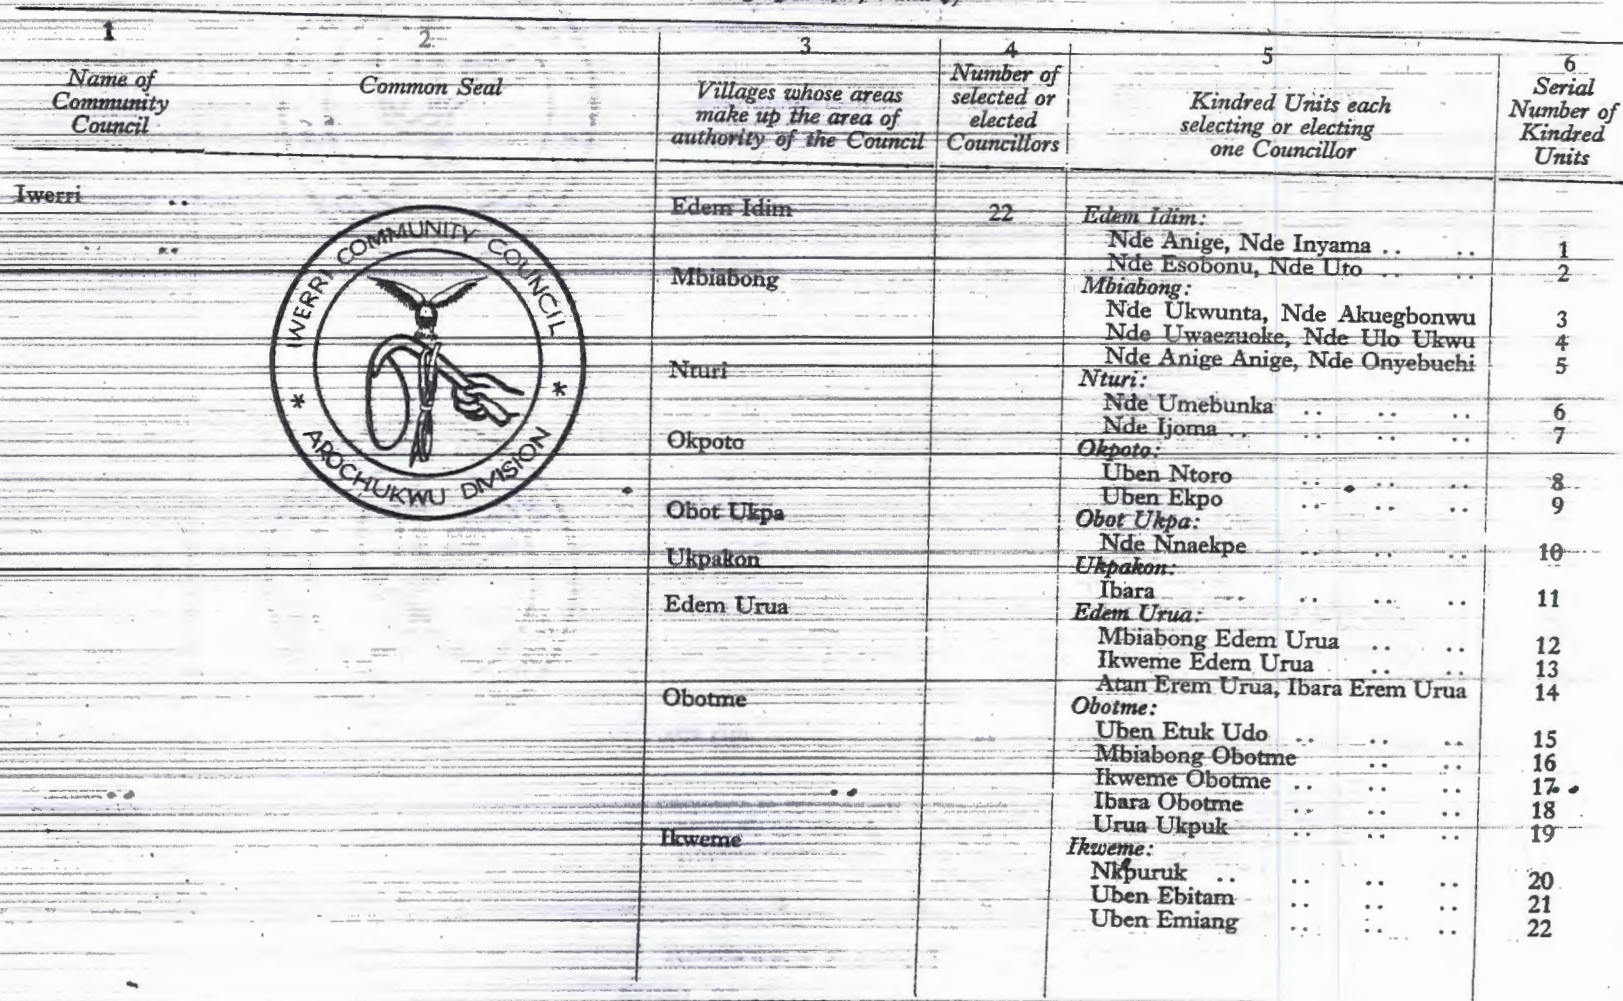 1 2 3 4 5 6
Name of Community Council
Common Seal
Villages whose areas make up the area of authority of the Council
Number of selected or elected Councillors
Kindred Units each selecting or electing one Councillor
Serial Number of Kindred Units
Iwerri ..
IWERRI COMMUNITY COUNCIL
* AROCHUKWU DIVISION *
Edem Idim 22 Edem Idim:
Nde Anige, Nde Inyama .. .. 1
Nde Esobonu, Nde Uto .. .. 2
Mbiabong Mbiabong:
Nde Ukwunta, Nde Akuegbonwu 3
Nde Uwaezuoke, Nde Ulo Ukwu 4
Nde Anige Anige, Nde Onyebuchi 5
Nturi Nturi:
Nde Umebunka .. .. .. 6
Nde Ijoma .. .. .. .. 7
Okpoto Okpoto:
Uben Ntoro .. .. .. 8
Uben Ekpo .. .. .. 9
Obot Ukpa Obot Ukpa:
Nde Nnaekpe .. .. .. 10
Ukpakon Ukpakon:
Ibara .. .. .. .. 11
Edem Urua Edem Urua:
Mbiabong Edem Urua .. .. 12
Ikweme Edem Urua .. .. 13
Atan Erem Urua, Ibara Erem Urua 14
Obotme Obotme:
Uben Etuk Udo .. .. .. 15
Mbiabong Obotme .. .. 16
Ikweme Obotme .. .. .. 17
Ibara Obotme .. .. .. 18
Urua Ukpuk .. .. .. 19
Ikweme Ikweme:
Nkpuruk .. .. .. .. 20
Uben Ebitam .. .. .. 21
Uben Emiang .. .. .. 22